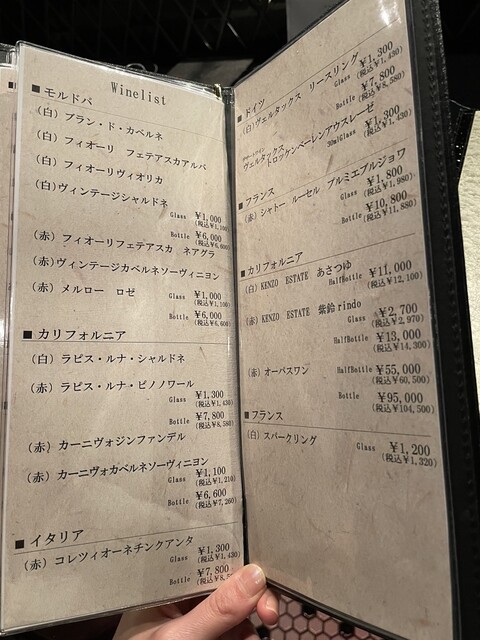 Winelist
■モルドバ
(白) ブラン・ド・カベルネ
(白) フィオーリ フェテアスカアルバ
(白) フィオーリヴィオリカ
(白)ヴィンテージシャルドネ
Glass ¥1,000
(税込¥1,100)
Bottle ¥6,000
(税込¥6,600)
(赤) フィオーリフェテアスカ ネアグラ
(赤)ヴィンテージカベルネソーヴィニヨン
(赤) メルロー ロゼ
Glass ¥1,000
(税込¥1,100)
Bottle ¥6,000
(税込¥6,600)
■カリフォルニア
(白) ラピス・ルナ・シャルドネ
(赤) ラピス・ルナ・ピノノワール
Glass ¥1,300
(税込¥1,430)
Bottle ¥7,800
(税込¥8,580)
(赤) カーニヴォジンファンデル
(赤) カーニヴォカベルネソーヴィニヨン
Glass ¥1,100
(税込¥1,210)
Bottle ¥6,600
(税込¥7,260)
■イタリア
(赤) コレツィオーネチンクアンタ
Glass ¥1,300
(税込¥1,430)
Bottle ¥7,800
■ドイツ
(白)ヴェルタックス リースリング
Glass ¥1,300
(税込¥1,430)
Bottle ¥7,800
(税込¥8,580)
デザートワイン
ヴェルタックス
トロッケンベーレンアウスレーゼ
30mlGlass ¥1,300
(税込¥1,430)
■フランス
(赤) シャトー ルーセル プルミエブルジョワ
Glass ¥1,800
(税込¥1,980)
Bottle ¥10,800
(税込¥11,880)
■カリフォルニア
(白) KENZO ESTATE あさつゆ
HalfBottle ¥11,000
(税込¥12,100)
(赤) KENZO ESTATE 紫鈴rindo
Glass ¥2,700
(税込¥2,970)
HalfBottle ¥13,000
(税込¥14,300)
(赤) オーパスワン HalfBottle ¥55,000
(税込¥60,500)
Bottle ¥95,000
(税込¥104,500)
■フランス
(白) スパークリング Glass ¥1,200
(税込¥1,320)